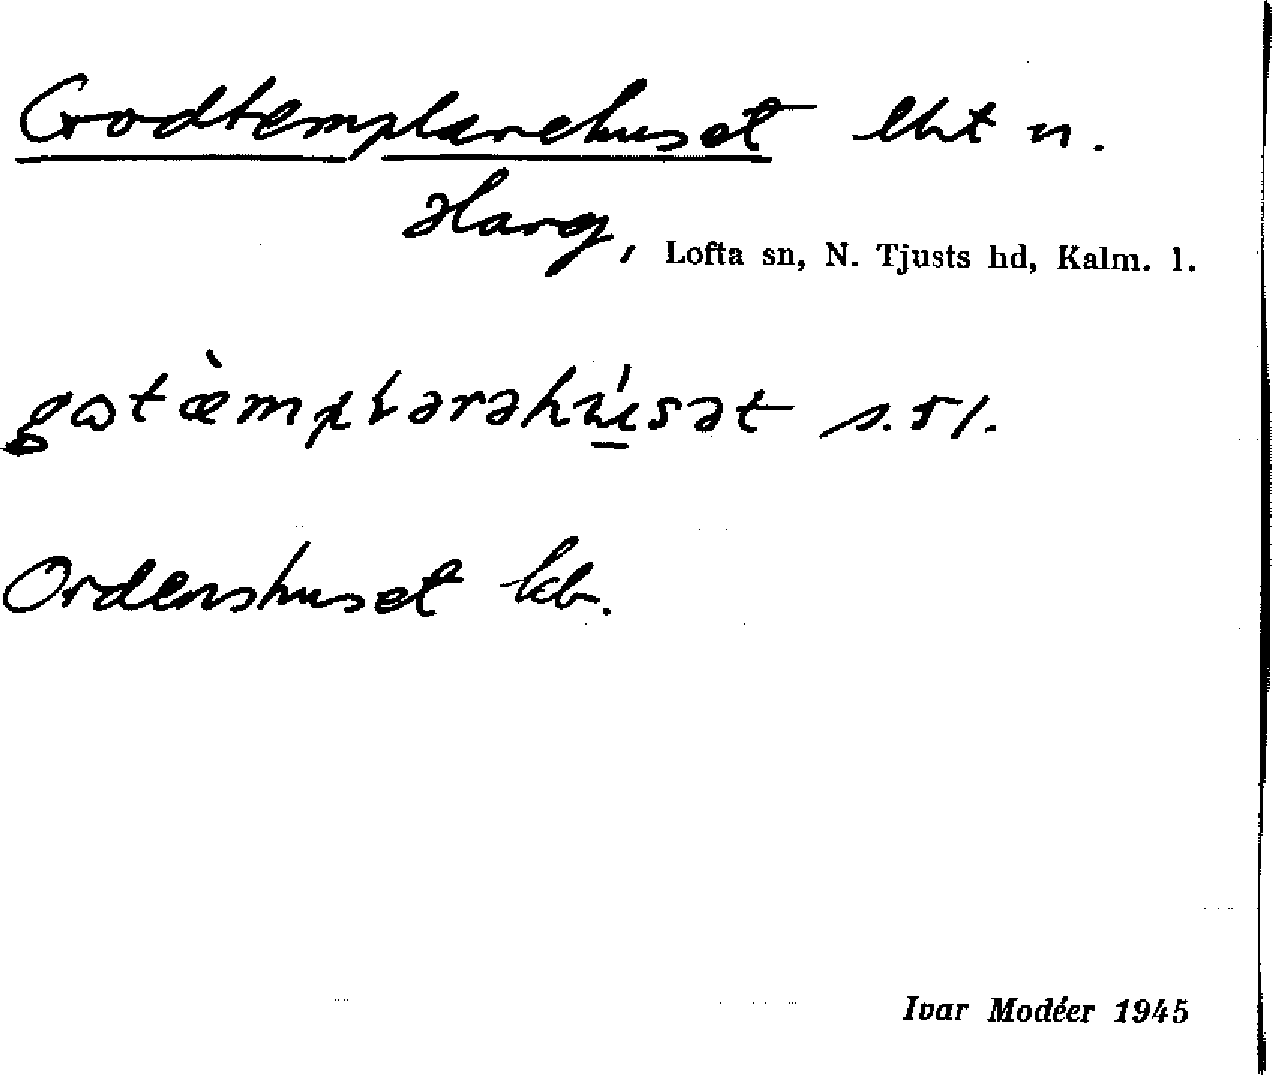 Godtemplarehuset lht n.
Harg, Lofta sn, N. Tjusts hd, Kalm. l.
Ordenshuset kb.
Ivar Modéer 1945